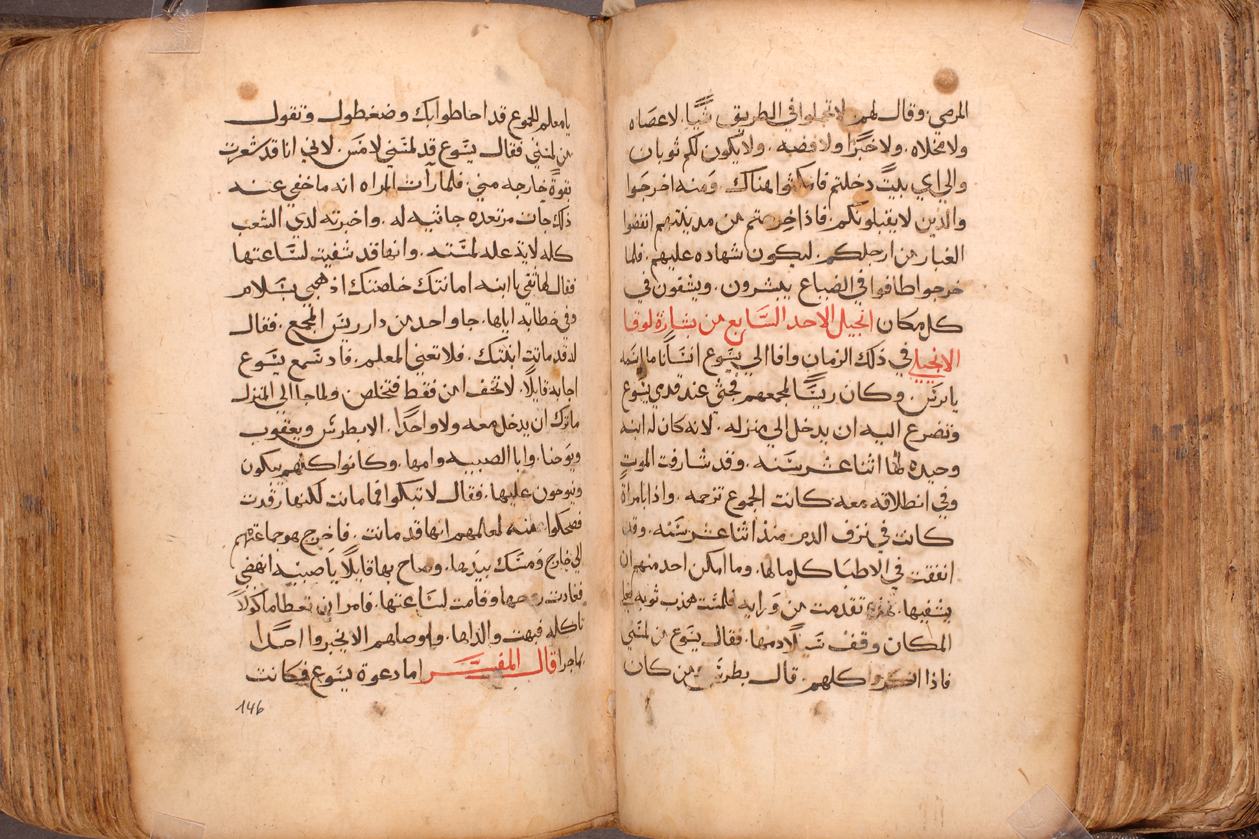 المرضي وقال لهم لا تحملوا في الطريق شيًا. لا عصاه
ولا مخلاه. ولا خبزًا ولا فضه. ولا يكون لكم ثوبان
والي اي بيتٍ دخلتم فامكثوا هناك. ومنه اخرجوا
والذين لا يقبلونكم. فاذا خرجتم من مدينتهم انفضوا
الغبار من ارجلكم. ليكون شهاده عليهم. فلما
خرجوا طافوا في الضياع يبشرون. ويشفون في
كل مكان انجيل الاحد السَّابع من بشارة لوقا
الانجيلي في ذلك الزمان وافا الي يسَّوع انسَانًا ما اسمه
يايرسَ. وكان ريسًا لمجمعهم فجثي عند قدمي يسَّوع
وتضرع اليه ان يدخل الي منزله. لانه كان له ابنه
وحيده لها اثنا عشر سَنه. وقد شارفت الموت
وفي انطلاقه معه كانت الجموع تزحمه. واذا بامراة
كانت في نزف الدم منذ اثنا عشر سَنه. وقد
انفقت في الاطبا كل مالها. وما امكن احد منهم ان
يشفيها. تقدمت من ورايه فلمسَت هدب ثوبه
المكان وقف سَيلًا دمها. فقال يسَوع من لمسَني
فاذا انكروا كلهم. قال بطرسَ من كان
يا معلم الجموع قد احاطوا بك وضغطوك وتقول
من لمسَني فقال يسَّوع قد لمسَني لامسَ. لاني انا قد شعرت
بقوةً خارجه مني. فلما رآت المراه انه ما خفي عنه
ذلك جات مرتعده جاثيه له. واخبرته لدي الشعب
كله لاية عله لمسَته. وانها قد شفيت لسَاعتها
فقال لها ثقي يا ابنه امانتك خلصتك اذهبي بسَلام
وفي خطابه اياها. جا واحد من دار ريسَ المجمع. فقال
له قد ماتت ابنتك. فلا تعني المعلم. فاذ سَمع يسَّوع
اجابه قايلًا. لا تخف امن فقط فتخلص. ولما جا الي المنزل
ما ترك ان يدخل معه ولا واحدًا. الا بطرسَ ويعقوب
ويوحنا. وابا الصبيه وامها. وكانوا كلهم يبكون
وينوحون عليها. فقال لا تبكوا فما ماتت لكنها رقدت
فضحكوا منه لعلمهم انها قد ماتت. فاخرج هو جماعتهم
الي خارج وَمسَك بيدها. وصاح بها قايلًا يا صبيه انهضي
فعادت روحها وقامت لسَاعتها. فامر ان تعطا ماكولًا
تاكله فبهت والداها. واوصاهم الا يخبروا احدًا
بما جرا قال المفسَّر اما دعوة يسَوع فكانت
146